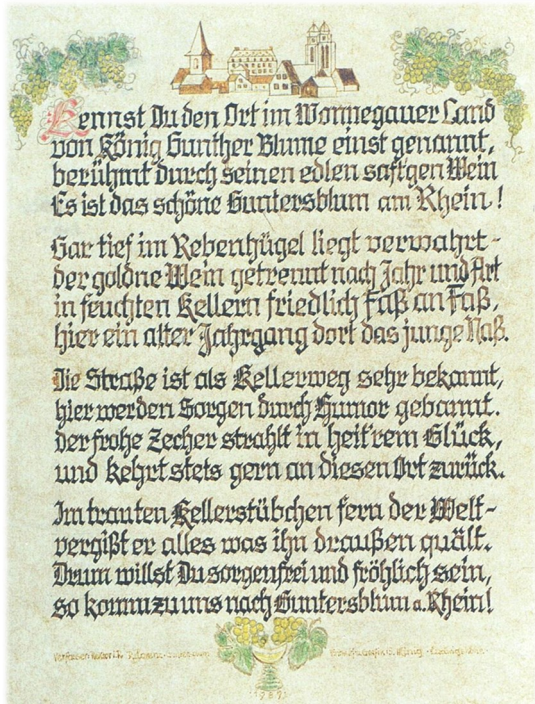 Kennst Du den Ort im Wonnegauer Land
von König Gunther Blume einst genannt,
berühmt durch seinen edlen saftgen Wein
Es ist das schöne Guntersblum am Rhein!
Gar tief im Rebenhügel liegt verwahrt-
der goldne Wein getrennt nach Jahr und Art
in feuchten Kellern friedlich Faß an Faß,
hier ein alter Jahrgang dort das junge Naß.
Die Straße ist als Kellerweg sehr bekannt,
hier werden Sorgen durch Humor gebannt.
Der frohe Zecher strahlt in heit'rem Glück,
und kehrt stets gern an diesen Ort zurück.
Im trauten Kellerstübchen fern der Welt-
vergißt er alles was ihn draußen quält.
Drum willst Du sorgenfrei und fröhlich sein,
so komm zu uns nach Guntersblum a. Rhein!